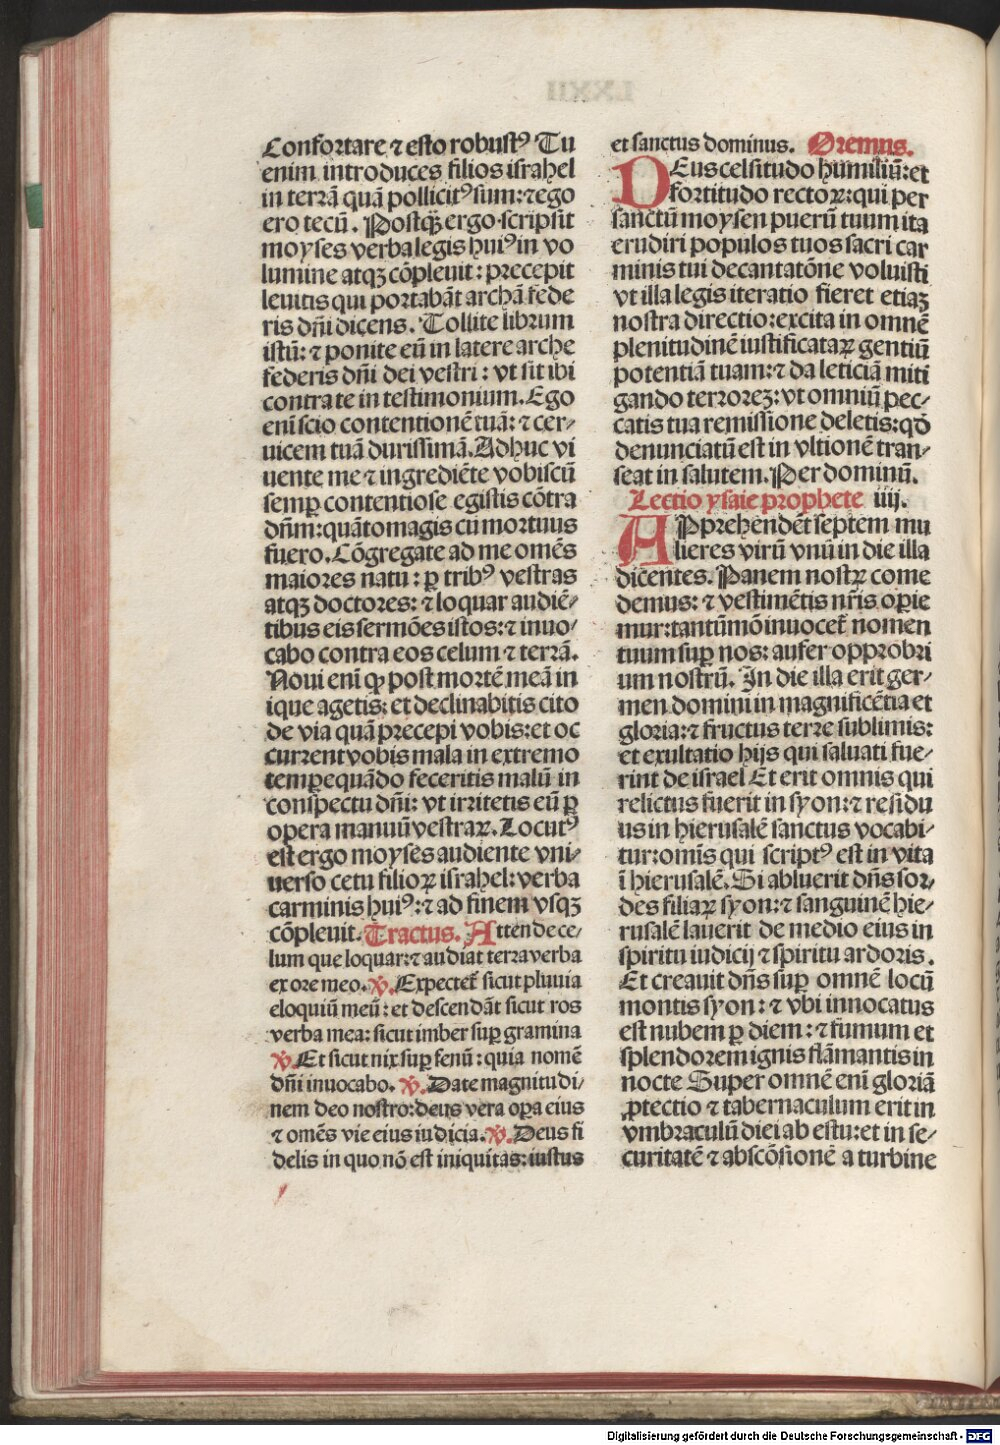 Confortare ⁊ esto robustꝰ Tu
enim introduces filios israhel
in terrā quā pollicitꝰ sum: ⁊ ego
ero tecū. Postq̄ȝ ergo scripsit
moyses verba legis huiꝰ in vo
lumine atqȝ cōpleuit: precepit
leuitis qui portabāt archā fede
ris dn̄i dicens. Tollite librum
istū: ⁊ ponite eū in latere arche
federis dn̄i dei vestri: vt sit ibi
contra te in testimonium. Ego
eni scio contentionē tuā: ⁊ cer-
uicem tuā durissimā. Adhuc vi
uente me ⁊ ingrediēte vobiscū
semꝑ contentiose egistis cōtra
dn̄m: quāto magis cū mortuus
fuero. Cōgregate ad me omēs
maiores natu: ꝑ tribꝰ vestras
atqȝ doctores: ⁊ loquar audiē-
tibus eis sermōes istos: ⁊ inuo-
cabo contra eos celum ⁊ terrā.
Noui enī ꝙ post mortē meā in
ique agetis: et declinabitis cito
de via quā precepi vobis: et oc
current vobis mala in extremo
temꝑe quādo feceritis malū in
conspectu dn̄i: vt irritetis eū ꝑ
oꝑa manuū vestraꝝ. Locutꝰ
est ergo moyses audiente vni-
uerso cetu filioꝝ israhel: verba
carminis huiꝰ: ⁊ ad finem vsqȝ
cōpleuit. Tractus. Attende ce-
lum que loquar: ⁊ audiat terra verba
ex ore meo. ℣. Expectet᷑ sicut pluuia
eloquiū meū: et descendāt sicut ros
verba mea: sicut imber suꝑ gramina
℣. Et sicut nix suꝑ fenū: quia nomē
dn̄i inuocabo. ℣. Date magnitudi-
nem deo nostro: deus vera oꝑa eius
⁊ omēs vie eius iudicia. ℣. Deus fi
delis in quo nō est iniquitas: iustus
et sanctus dominus. Oremus.
DEus celsitudo humiliū: et
fortitudo rectoꝝ: qui per
sanctū moysen puerū tuum ita
erudiri populos tuos sacri car
minis tui decantatōne voluisti
vt illa legis iteratio fieret etiaȝ
nostra directio: excita in omnē
plenitudinē iustificataꝝ gentiū
potentiā tuam: ⁊ da leticiā miti
gando terrorēȝ: vt omniū pec-
catis tua remissione deletis: qđ
denunciatū est in vltionē tran-
seat in salutem. Per dominū.
Lectio ysaie prophete iiij.
APprehendēt septem mu
lieres virū vnū in die illa
dicentes. Panem nostꝝ come
demus: ⁊ vestimētis nr̄is oꝑie
mur: tantūmō inuocet᷑ nomen
tuum suꝑ nos: aufer opprobri
um nostrū. In die illa erit ger-
men domini in magnificētia et
gloria: ⁊ fructus terre sublimis:
et exultatio hijs qui saluati fue-
rint de israel Et erit omnis qui
relictus fuerit in syon: ⁊ residu
us in hierusalē sanctus vocabi-
tur: omīs qui scriptꝰ est in vita
ī hierusalē. Si abluerit dn̄s sor-
des filiaꝝ syon: ⁊ sanguinē hie-
rusalē lauerit de medio eius in
spiritu iudicij ⁊ spiritu ardoris.
Et creauit dn̄s suꝑ omnē locū
montis syon: ⁊ vbi innocatus
est nubem ꝑ diem: ⁊ fumum et
splendorem ignis flāmantis in
nocte Super omnē enī gloriā
ꝓtectio ⁊ tabernaculum erit in
vmbraculū diei ab estu: et in se-
curitatē ⁊ abscōsionē a turbine
Digitalisierung gefördert durch die Deutsche Forschungsgemeinschaft - DFG